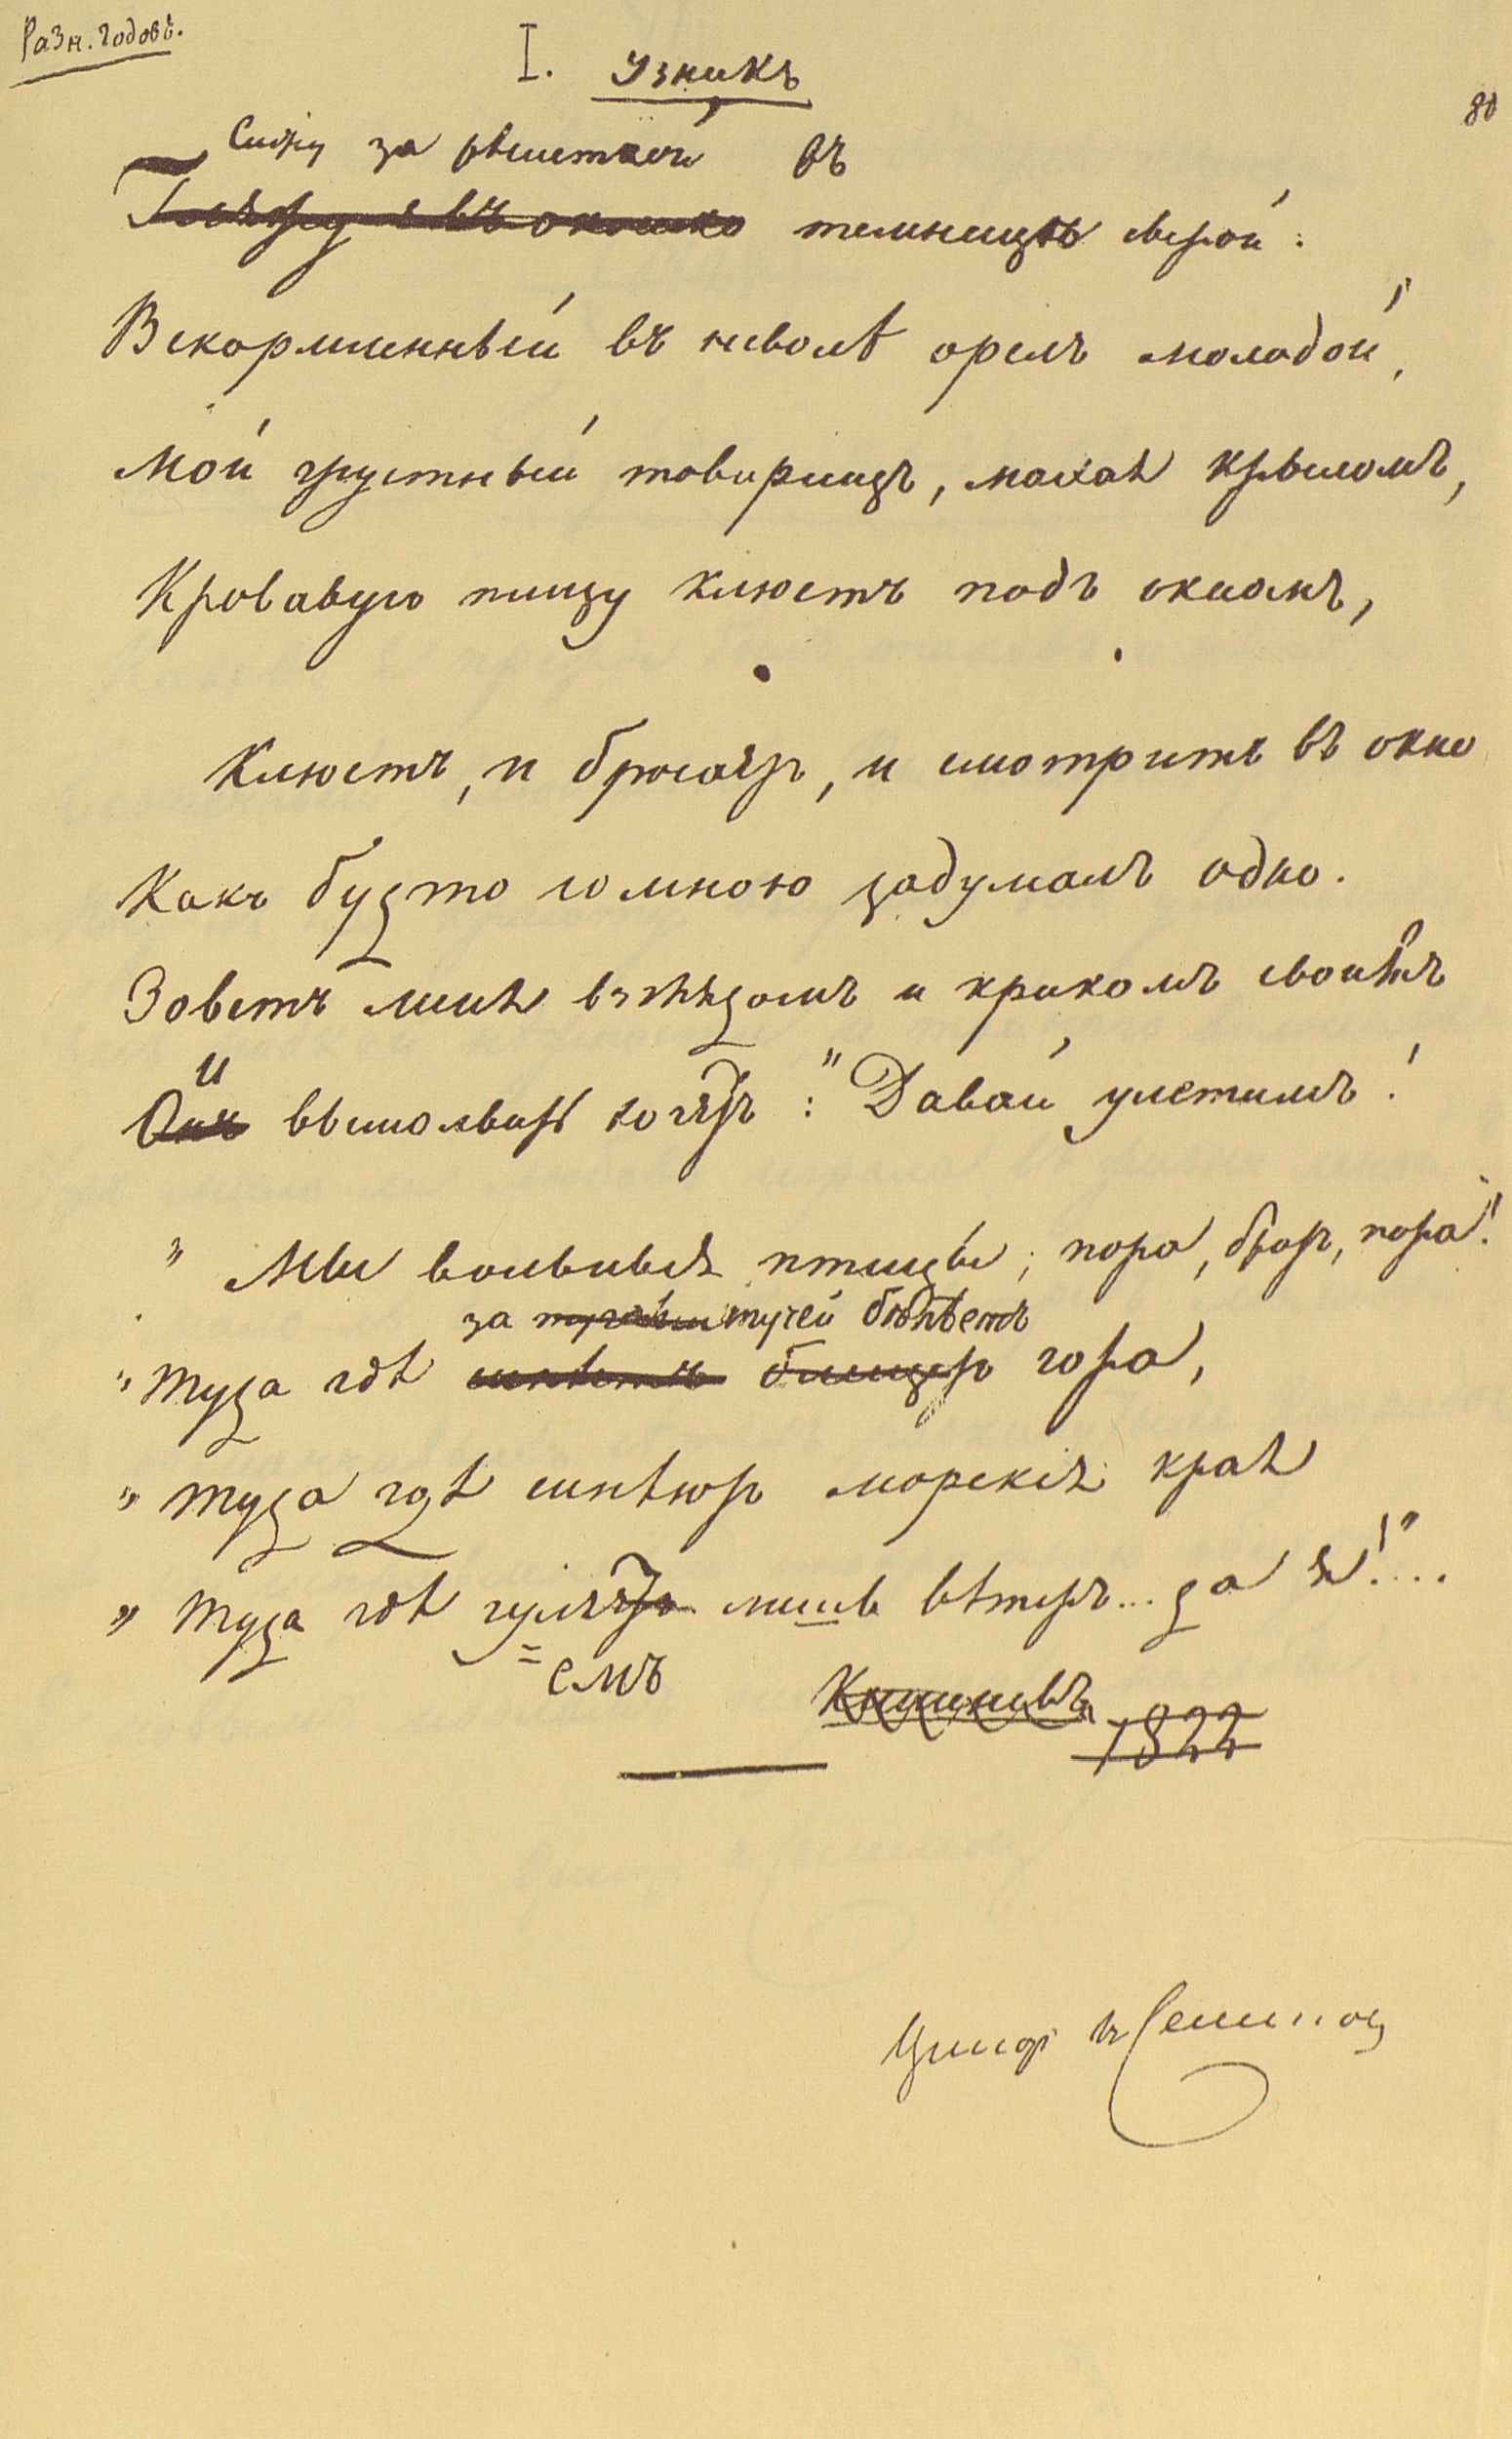 Разн. годовъ.
I. Узникъ
80
Сижу за рѣшеткой въ
Гляжу я въ окошко темницы сырой.
Вскормленный въ неволѣ орелъ молодой,
Мой грустный товарищъ, махая крыломъ,
Кровавую пищу клюетъ подъ окномъ,
Клюетъ, и бросаетъ, и смотритъ въ окно
Какъ будто со мною задумалъ одно.
Зоветъ меня взглядомъ и крикомъ своимъ
И
Онъ вымолвить хочетъ: "Давай улетимъ!
" Мы вольныя птицы; пора, братъ, пора!
за тучами тучей бѣлѣетъ
" Туда гдѣ синѣетъ гора,
" Туда гдѣ синѣютъ морскіе края
" Туда гдѣ гуляетъ лишь вѣтеръ... да я!"...
=емъ
Кишиневъ
1822